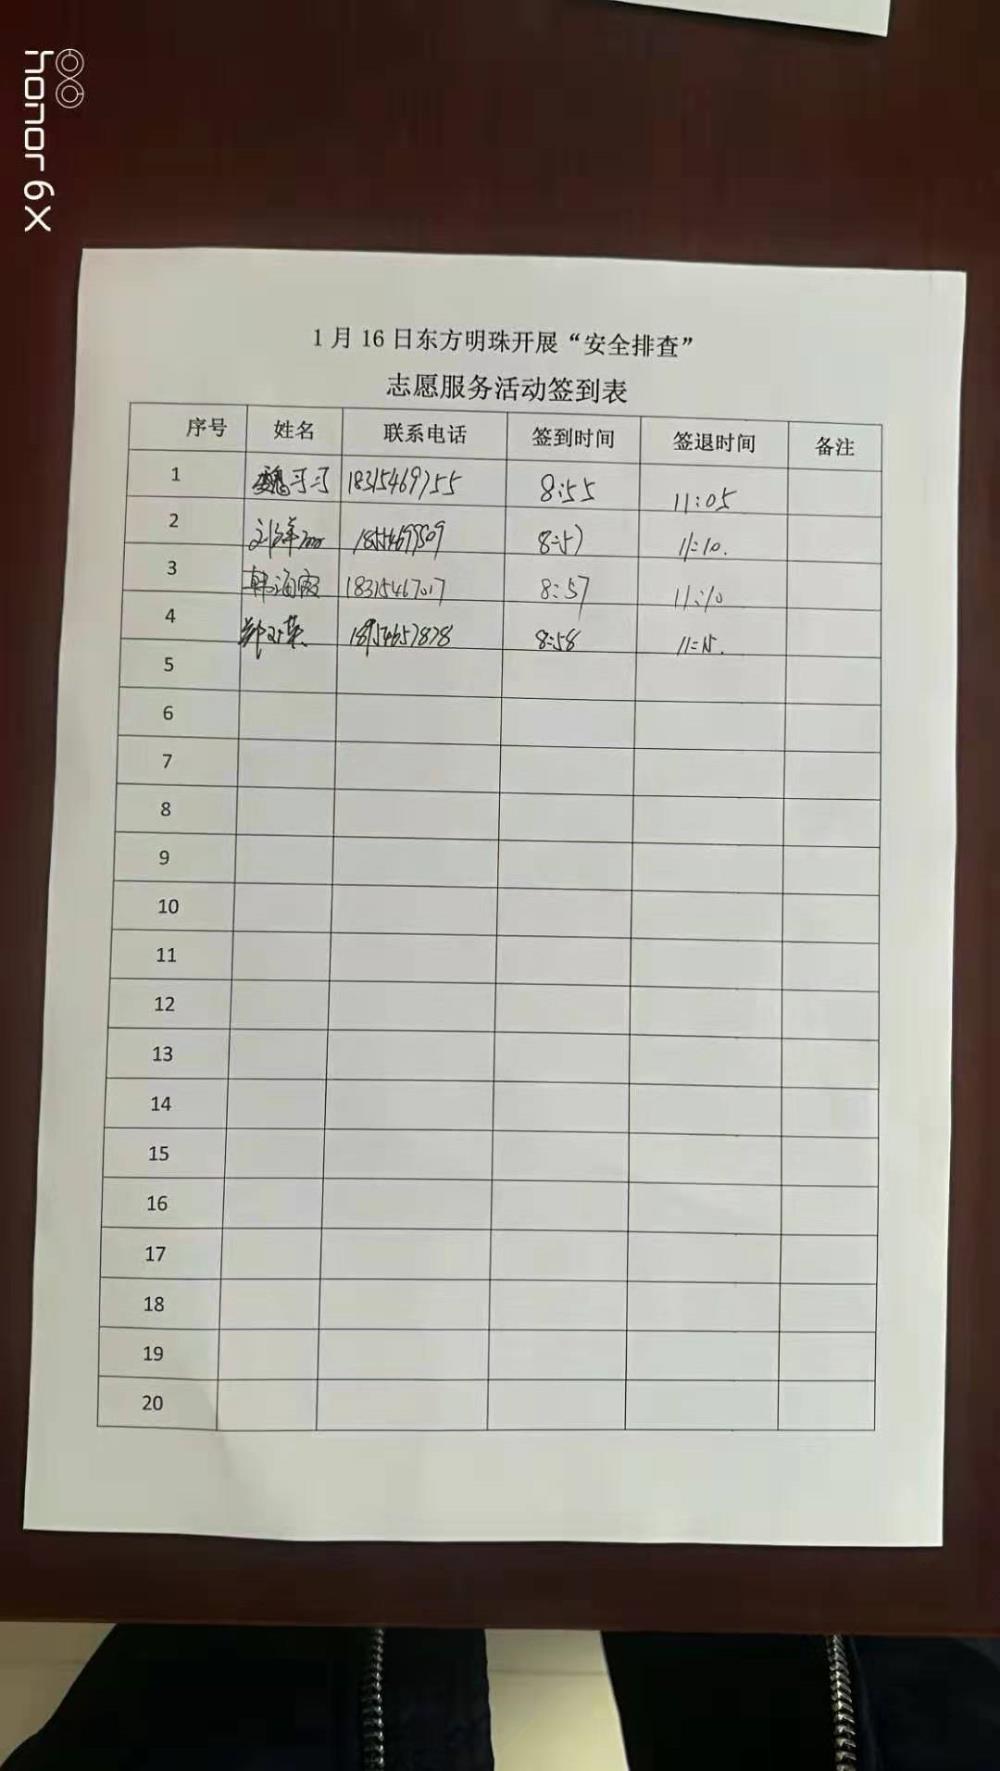 honor 6X
1 月 16 日东方明珠开展“安全排查”
志愿服务活动签到表
序号 姓名 联系电话 签到时间 签退时间 备注
1 18315469755 8:55 11:05
2 8:57 11:10.
3 韩海霞 18315467017 8:57 11:10
4 8:58 11:15.
5
6
7
8
9
10
11
12
13
14
15
16
17
18
19
20